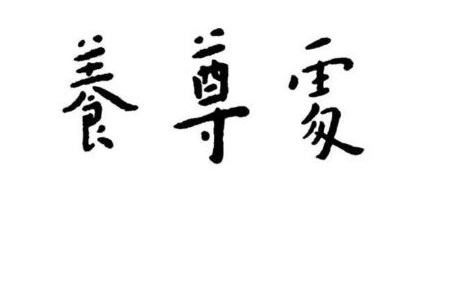 養尊處